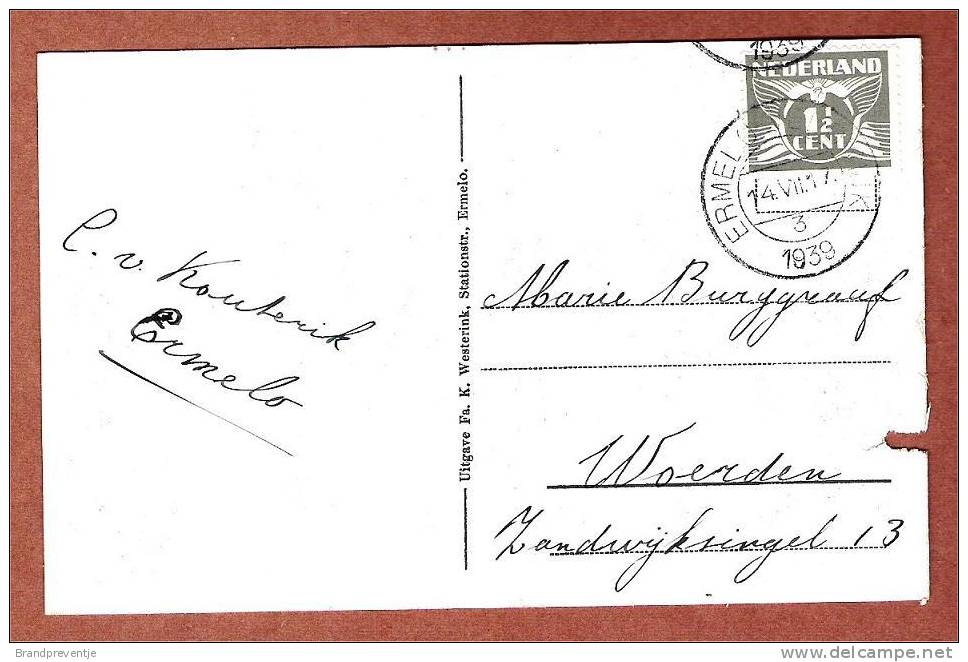 1939
NEDERLAND
1½
CENT
ERMELO
14.VII.17
3
1939
C. v. Kouterik
Ermelo
Uitgave Fa. K. Westerink, Stationstr., Ermelo.
Marie Burggraaf
Woerden
Zandwijksingel 13
Brandpreventje
delcampe.net